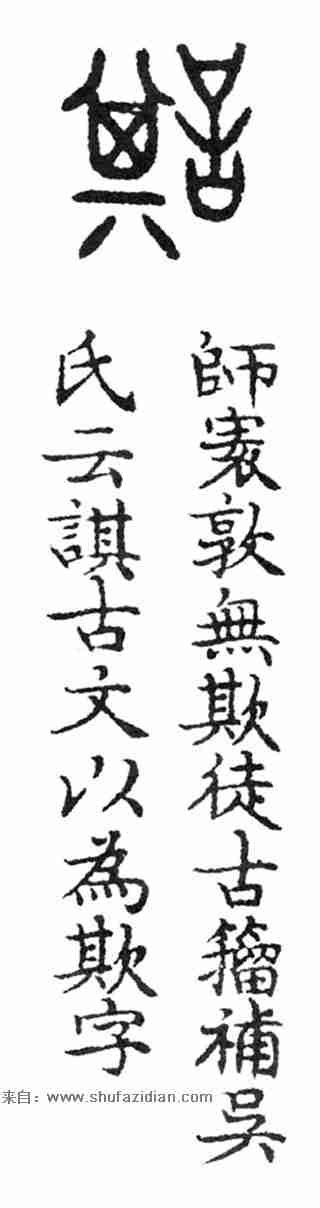 諆
師敦無欺徒古籀補吳
氏云諆古文以為欺字
来自：www.shufazidian.com